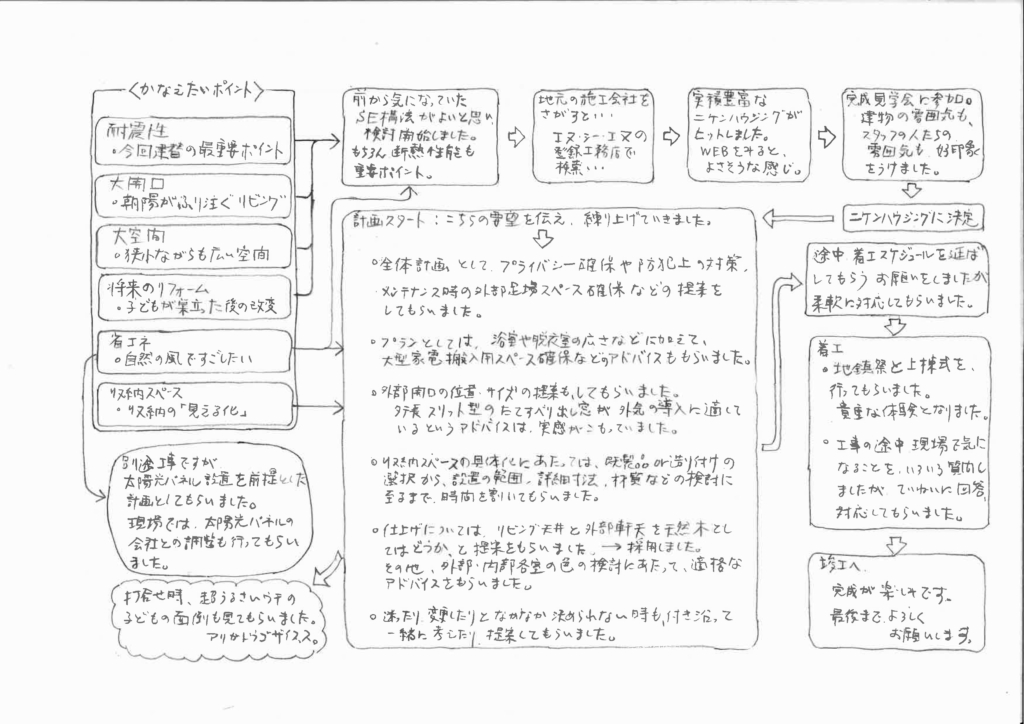 〈かなえたいポイント〉
耐震性
・今回建替の最重要ポイント
大開口
・朝陽がふり注ぐリビング
大空間
・狭小ながらも広い空間
将来のリフォーム
・子どもが巣立った後の改変
省エネ
・自然の風ですごしたい
収納スペース
・収納の「見える化」
別途工事ですが
太陽光パネル設置を前提とした
計画としてもらいました。
現場では、太陽光パネルの
会社との調整も行ってもらい
ました。
打合せ時、超うるさいウチの
子どもの面倒も見てもらいました。
アリガトウゴザイマス。
前から気になっていた
SE構法がよいと思い、
検討開始しました。
もちろん断熱性能も
重要ポイント。
地元の施工会社を
さがすと・・
エヌ・シー・エヌの
登録工務店で
検索・・
実積豊富な
ニケンハウジングが
ヒットしました。
WEBをみると、
よさそうな感じ。
完成見学会に参加。
建物の雰囲気も、
スタッフの人たちの
雰囲気も、好印象
をうけました。
ニケンハウジングに決定
計画スタート：こちらの要望を伝え、練り上げていきました。
○全体計画として、プライバシー確保や防犯上の対策、
メンテナンス時の外部足場スペース確保などの提案を
してもらいました。
○プランとしては、浴室や脱衣室の広さなどに加えて、
大型家電搬入用スペース確保などのアドバイスももらいました。
○外部開口の位置・サイズの提案もしてもらいました。
縦長スリット型のたてすべり出し窓が外気の導入に適して
いるというアドバイスは、実感がこもっていました。
○収納スペースの具体化にあたっては、既製品or造り付けの
選択から、設置の範囲、詳細寸法、材質などの検討に
至るまで、時間を割いてもらいました。
○仕上げについては、リビング天井と外部軒天を天然木とし
てはどうか、と提案をもらいました。→採用しました。
その他、外部・内部各室の色の検討にあたって、適格な
アドバイスをもらいました。
○迷ったり、変更したりとなかなか決められない時も、付き沿って
一緒に考えたり、提案してもらいました。
途中、着工スケジュールを延ば
してもらうお願いをしましたが
柔軟に対応してもらいました。
着工
・地鎮祭と上棟式を、
行ってもらいました。
貴重な体験となりました。
・工事の途中、現場で気に
なることを、いろいろ質問し
ましたが、ていねいに回答、
対応してもらいました。
竣工へ
完成が楽しみです。
最後まで、よろしく
お願いします。